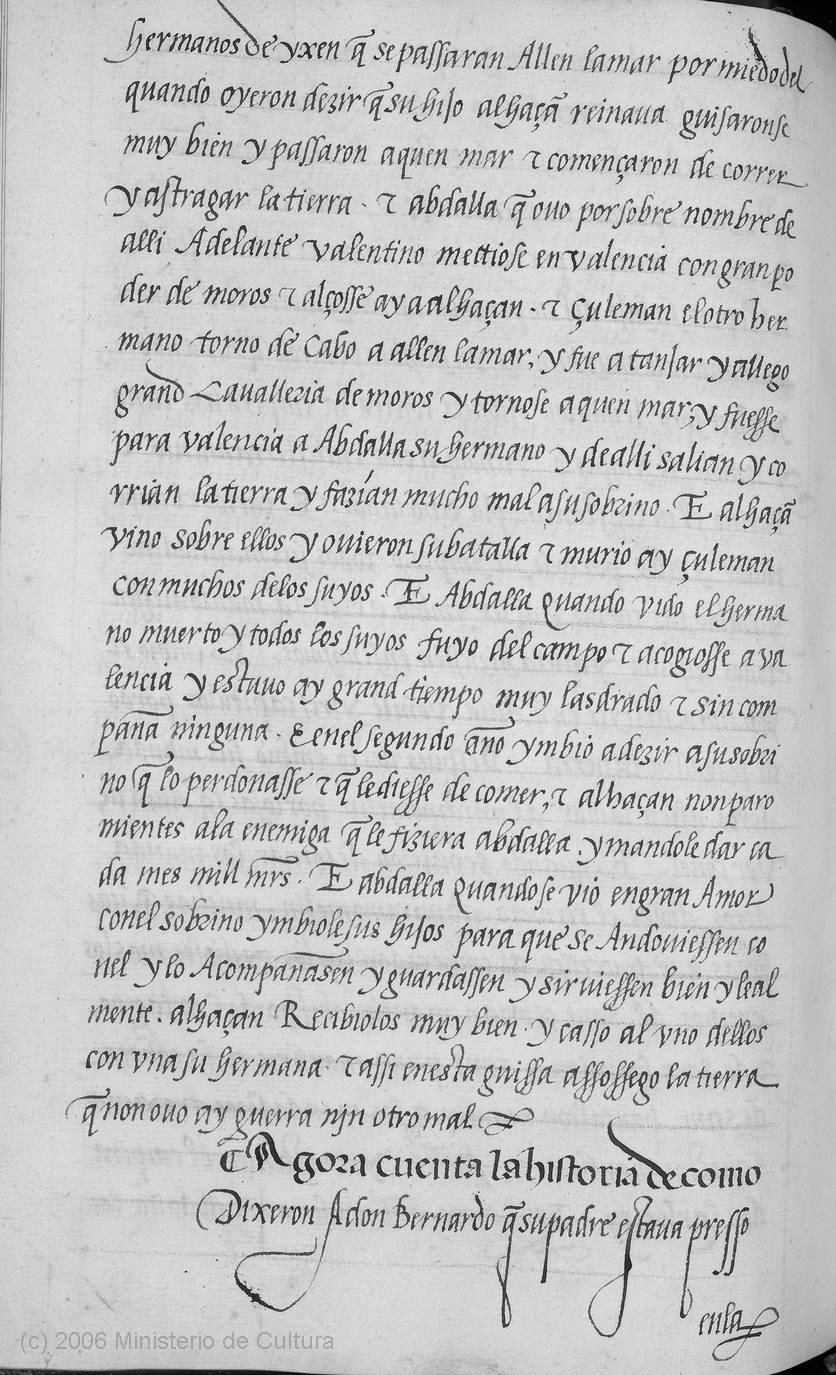 hermanos de yxen q̃ se passaran Allen la mar por miedo del
quando oyeron dezir q̃ su hijo alhaçã reinava guisaronse
muy bien y passaron aquen mar τ començaron de correr
y astragar la tierra . τ abdalla q̃ ovo por sobre nombre de
alli Adelante valentino mettiose en valencia con gran po
der de moros τ alçosse ay a alhaçan . τ çuleman el otro her
mano torno de Cabo a allen la mar, y fue a tanjar y allego
grand Cavalleria de moros y tornose aquen mar, y fuesse
para valencia a Abdalla su hermano y de alli salian y co
rrian la tierra y fazían mucho mal a su sobrino . E alhaçã
vino sobre ellos y ovieron su batalla τ murio ay çuleman
con muchos de los suyos . E Abdalla quando vido el herma
no muerto y todos los suyos fuyo del campo τ acogiosse a va
lencia y estuvo ay grand tiempo muy lasdrado τ sin com
pañã ninguna . E en el segundo año ymbio a dezir a su sobri
no q̃ lo perdonasse τ q̃ le diesse de comer, τ alhaçan non paro
mientes a la enemiga q̃ le fiziera abdalla y mandole dar ca
da mes mill mr̃s . E abdalla quando se vio en gran Amor
con el sobrino ymbiole sus hijos para que se Andoviessen co
nel y lo Acompañasen y guardassen y sirviessen bien y leal
mente . alhaçan Recibiolos muy bien . y casso al vno dellos
con vna su hermana . τ assi en esta guissa assossego la tierra
q̃ non ovo ay guerra nin otro mal
¶ Agora cuenta la historia de como
Dixeron A don Bernardo q̃ su padre estava presso
en la
(c) 2006 Ministerio de Cultura